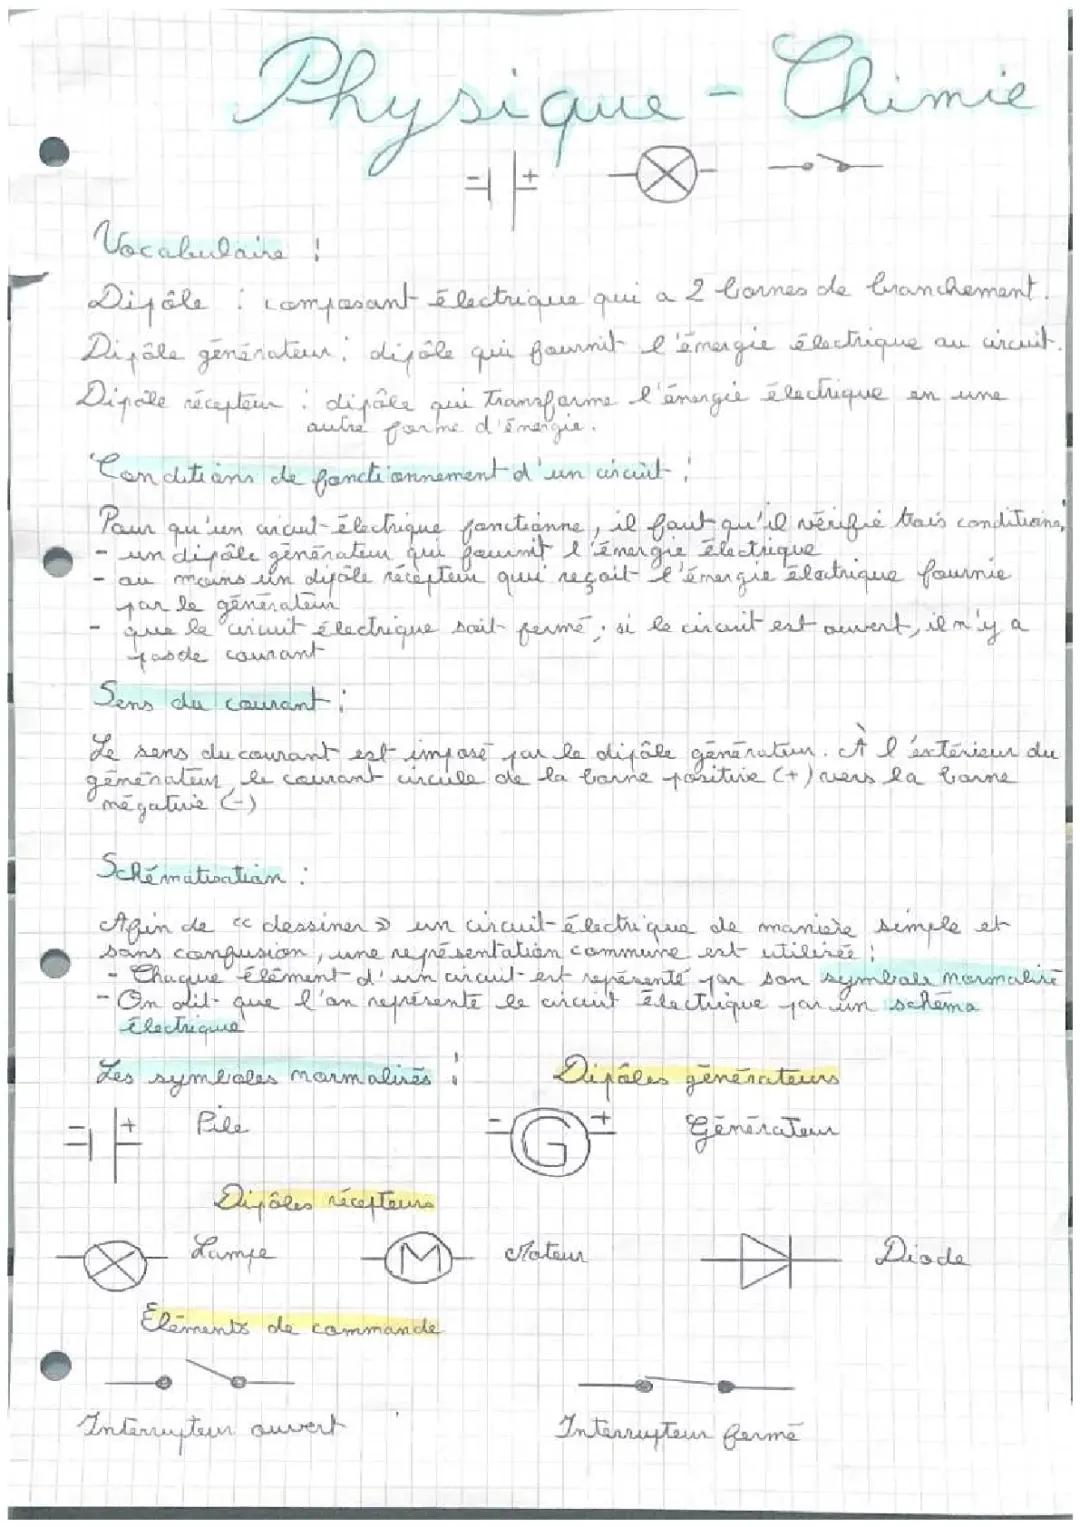 Physique - Chimie
- +
Vocabulaire :
Dipôle : composant électrique qui a 2 bornes de branchement.
Dipôle générateur : dipôle qui fournit l'énergie électrique au circuit.
Dipôle récepteur : dipôle qui transforme l'énergie électrique en une
autre forme d'énergie.
Conditions de fonctionnement d'un circuit :
Pour qu'un circuit électrique fonctionne, il faut qu'il vérifie trois conditions,
- un dipôle générateur qui fournit l'énergie électrique
- au moins un dipôle récepteur qui reçoit l'énergie électrique fournie
par le générateur
- que le circuit électrique soit fermé ; si le circuit est ouvert, il n'y a
pas de courant
Sens du courant :
Le sens du courant est imposé par le dipôle générateur. A l'extérieur du
générateur, le courant circule de la borne positive (+) vers la borne
négative (-)
Schématisation :
Afin de « dessiner » un circuit électrique de manière simple et
sans confusion, une représentation commune est utilisée :
- Chaque élément d'un circuit est représenté par son symbole normalisé
- On dit que l'on représente le circuit électrique par un schéma
électrique
Les symboles normalisés : Dipôles générateurs
- + Pile - G + Générateur
Dipôles récepteurs
Lampe M Moteur Diode
Eléments de commande
Interrupteur ouvert Interrupteur fermé